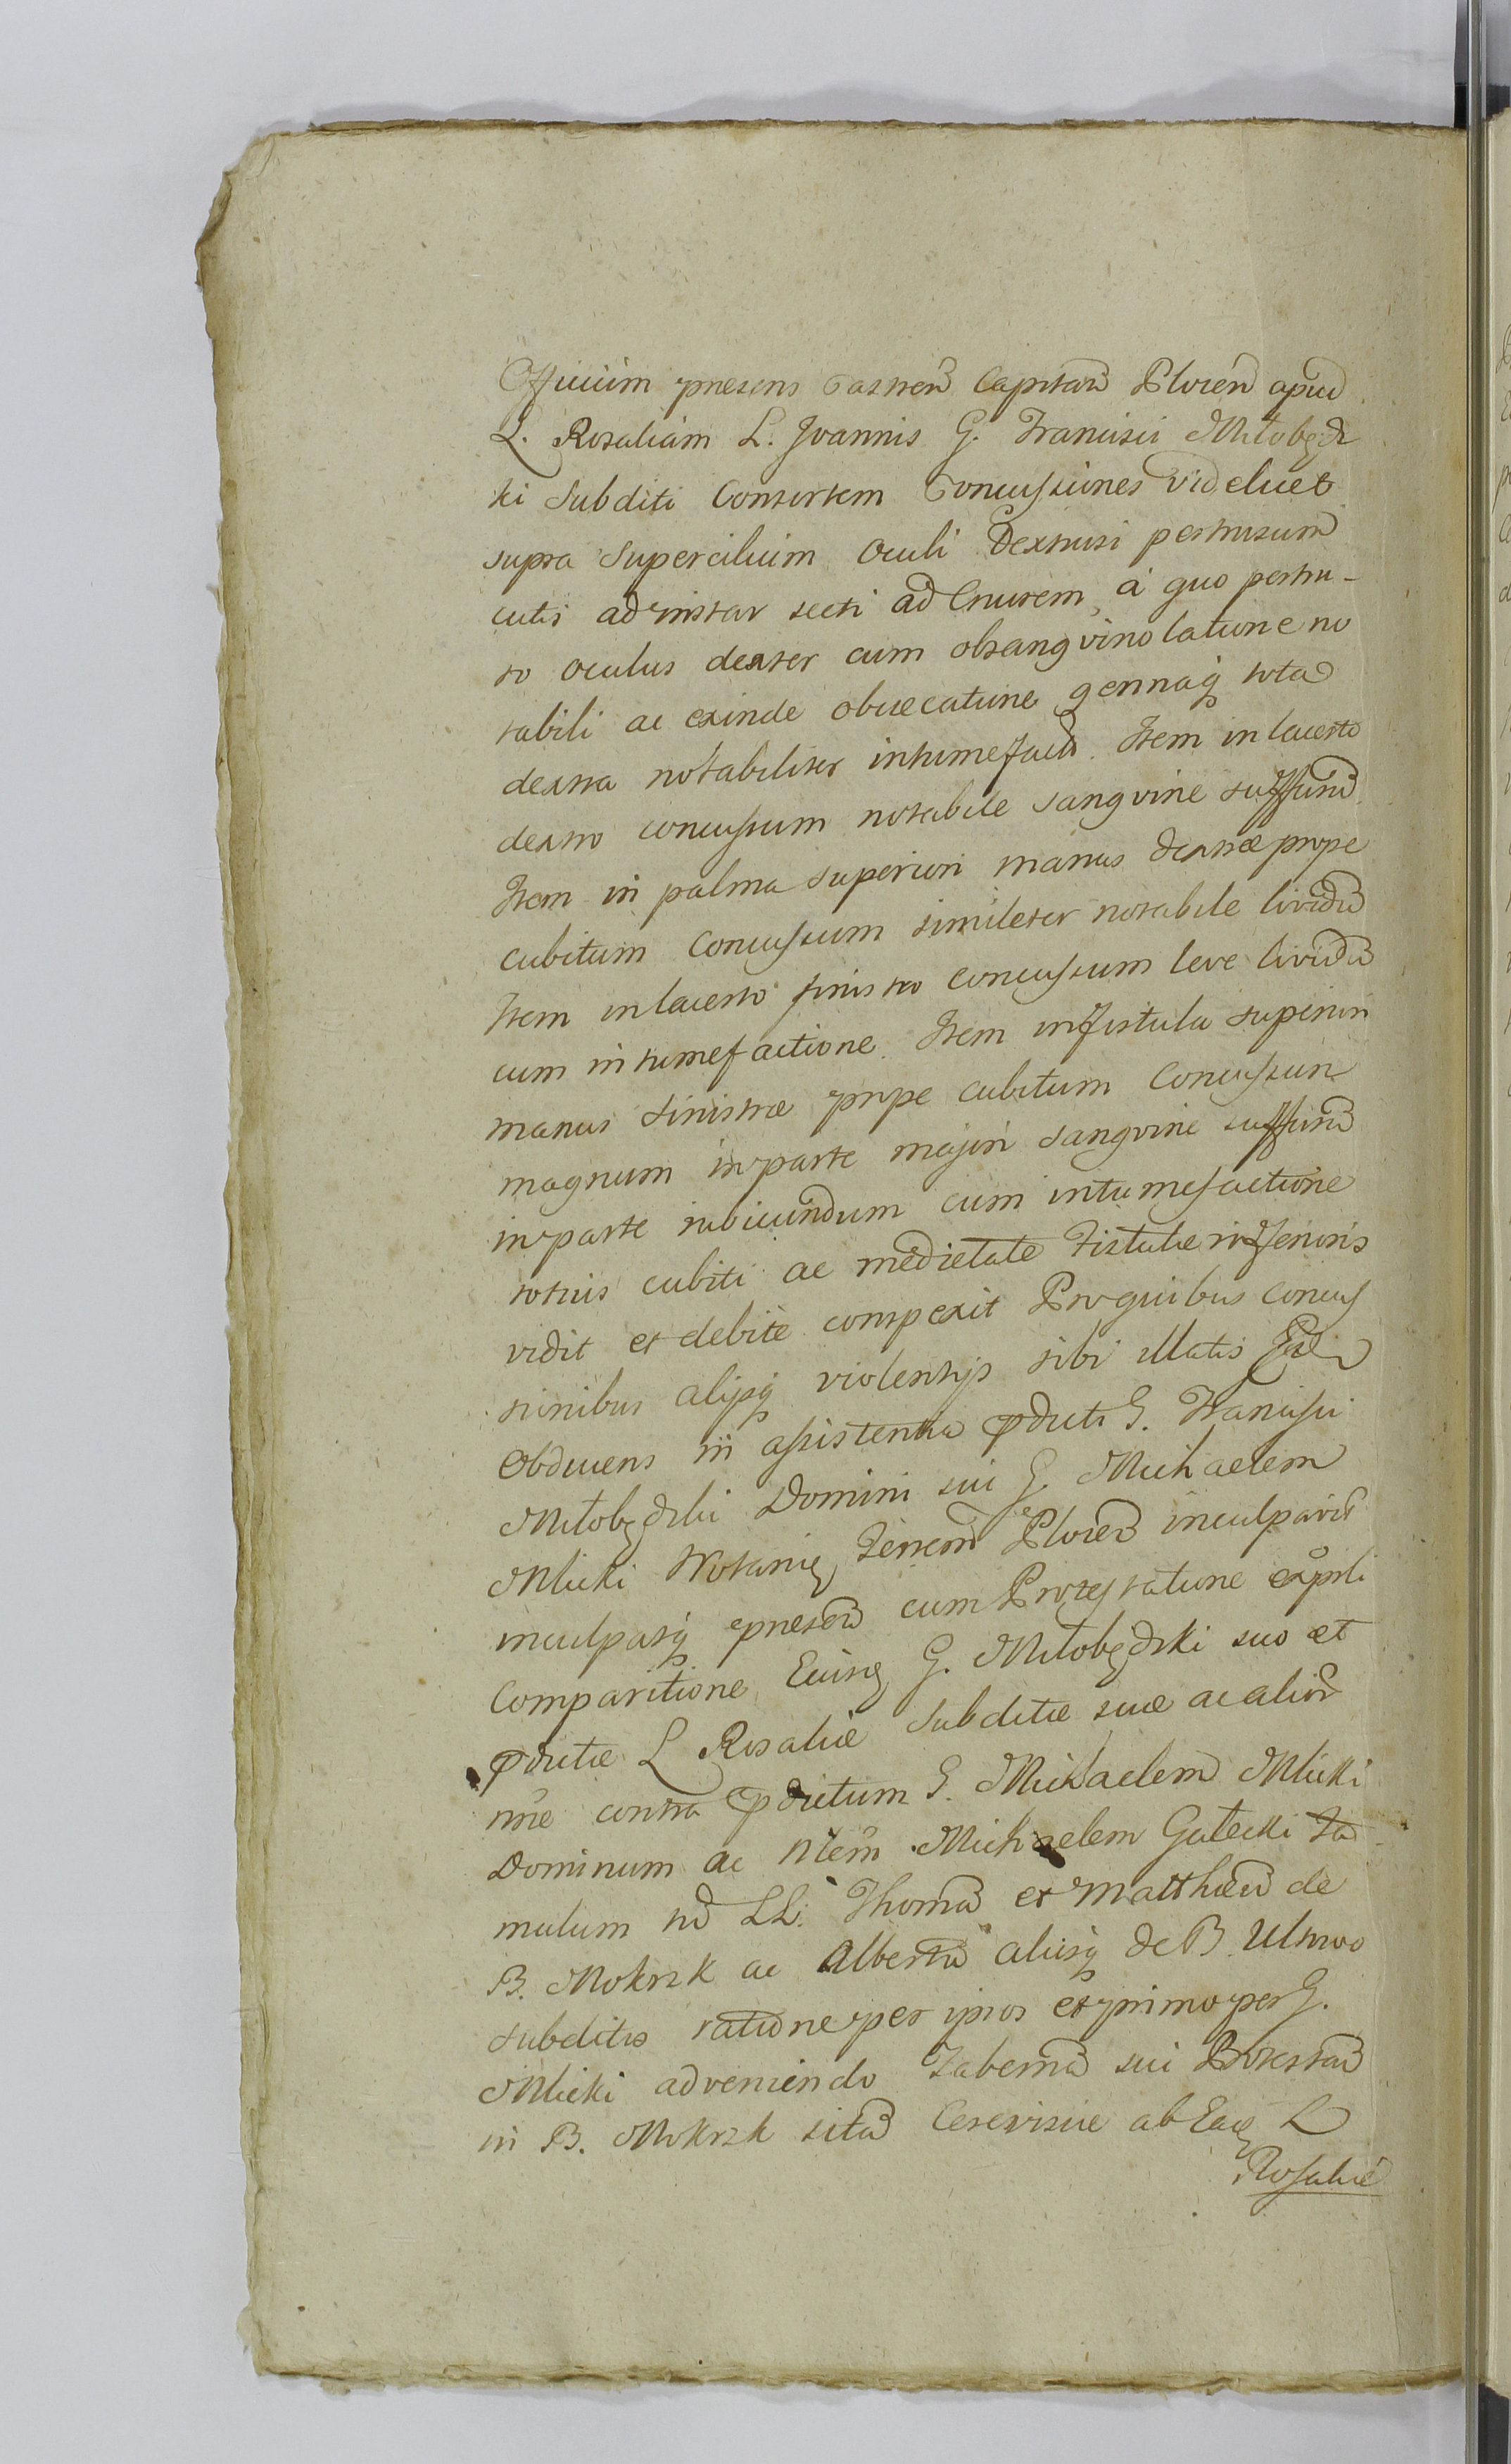 Officium praesens Castren Capitan Plocen apud
L. Rosaliam L. Joannis G. Francisci Miłobędz
ki Subditi Consortem Concussiones videlicet
supra Supercilium Oculi Dextrusi pertrusum
cutis ad instar secti ad Cruorem, à quo pertru-
so Oculus dexter cum obsangvinolatione no
tabili ac exinde obcaecatione genaq tota
dextra notabiliter intumefacta. Item in lacerto
dextro concussum notabile sangvine suffusum
Item in palma superiori manus dextrae prope
cubitum Concussum similiter notabile lividum
Item in lacerto sinistro concussum leve lividum
cum intumefactione. Item in fistula superiori
manus sinistrae prope cubitum Concussum
magnum in parte majori sangvine suffusum
in parte rubicundum cum intumefactione
totius cubiti ac medietate Fistulae inferioris
vidit et debite conspexit Pro quibus concus
sionibus alijsq violentijs sibi illatis
Obducens in assistentia pdicti G. Francisci
Miłobędzki Domini sui G. Michaelem
Mlicki Notariu Terren Plocen inculpavit
inculpatq praesen cum Protestatione
Comparitione Eiusd G. Miłobędzki suo et
pdictae L Rosaliae Subditae suae ac alior
nne contra pdictum G. Michaelem Mlicki
Dominum ac Nlem Michaelem Gałecki Fa
mulum nd LL. Thomā et Matthaeū de
B. Mokrzk ac Albertū aliisq de B. Ulrwo
subditis ratione per ipsos et primo per G.
Mlicki adveniendo Tabernā sui
in B. Mokrzk sitā Cerevisiae ab Ead L
Rosalia